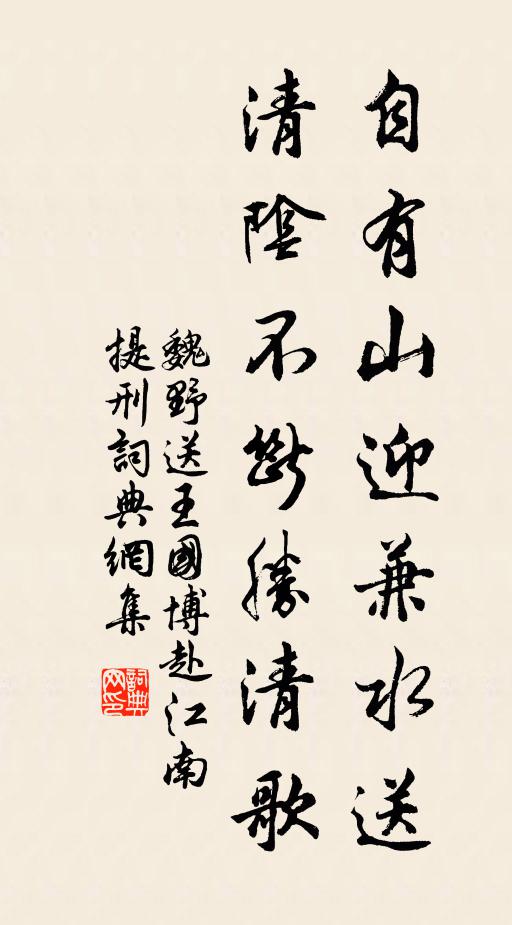 自有山迎兼水送
清陰不斷勝清歌
魏野送王國博赴江南
提刑詞典網集
詞典網印